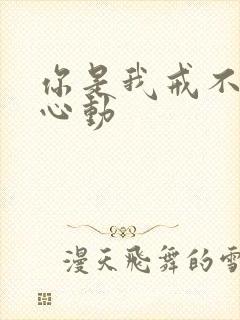 你是我戒不
心动
漫天飞舞的雪